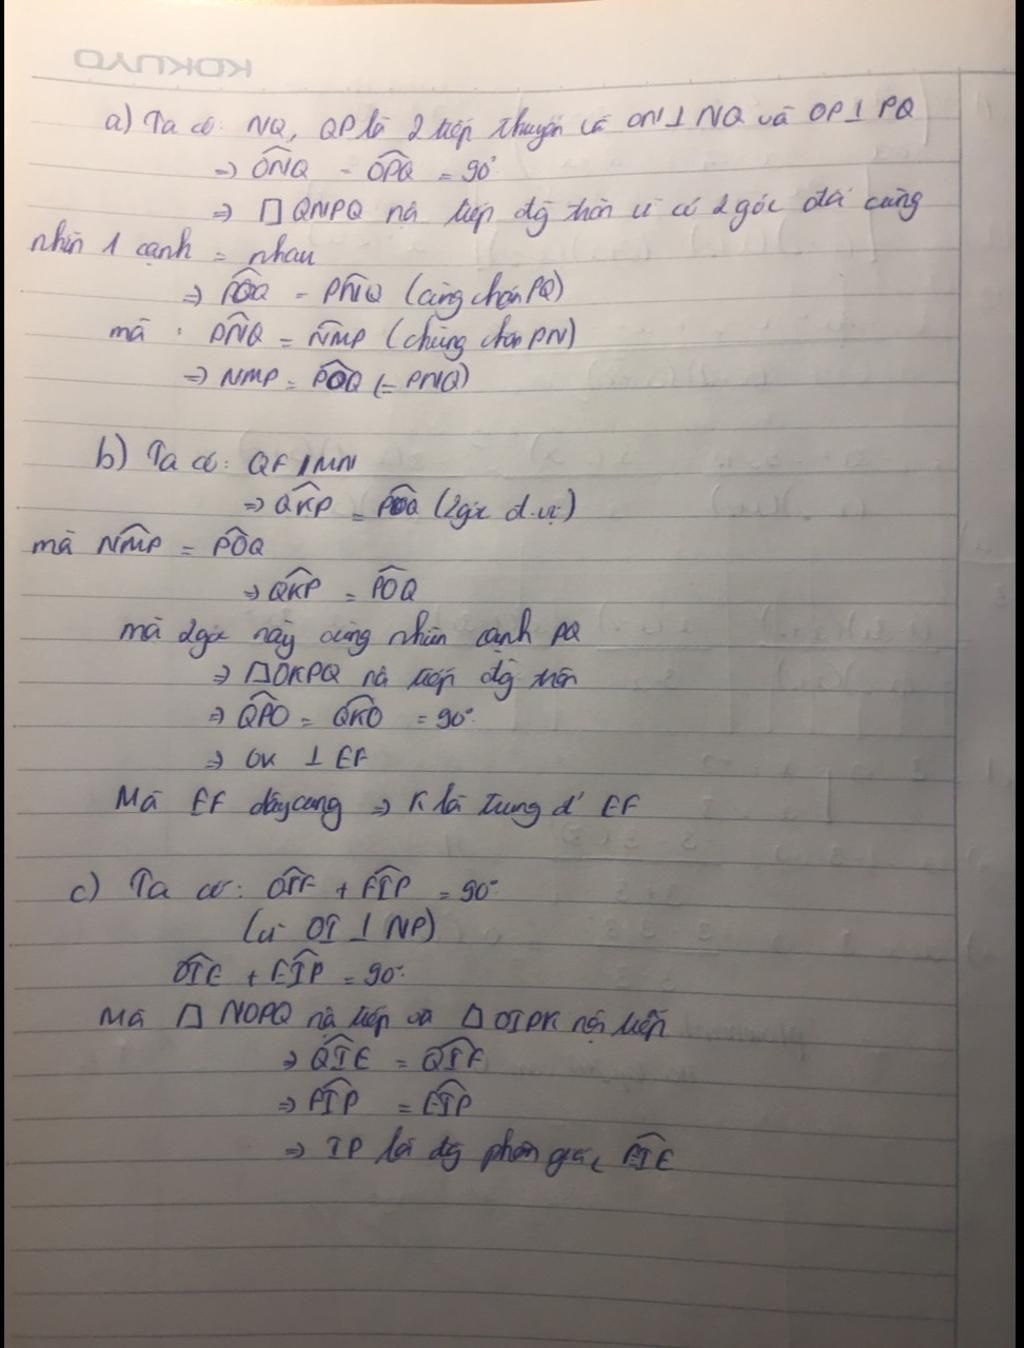 KOKUYO
a) Ta có: NQ, QP là 2 tiếp thuyến và ON ⊥ NQ và OP ⊥ PQ
=> ONQ = OPQ = 90°
=> □ QNPQ nội tiếp đg tròn vì có 2 góc đối cùng
nhìn 1 cạnh = nhau
=> POQ = PNQ (cùng chắn PQ)
mà : PNQ = NMP (chùng chắn PN)
=> NMP = POQ (= PNQ)
b) Ta có: QF // MN
=> QKP = POQ (2 góc đ.vị)
mà NMP = POQ
=> QKP = POQ
mà 2 góc này cùng nhìn cạnh PQ
=> □OKPQ nội tiếp đg tròn
=> QPO = QKO = 90°
=> OK ⊥ EF
Mà EF dây cung => K là trung đ' EF
c) Ta có: OIF + FIP = 90°
(vì OI ⊥ NP)
OIE + EIP = 90°
Mà □ NOPQ nội tiếp và □ OIPK nội tiếp
=> QIE = QIF
=> FIP = EIP
=> IP là đg phân giác FIE